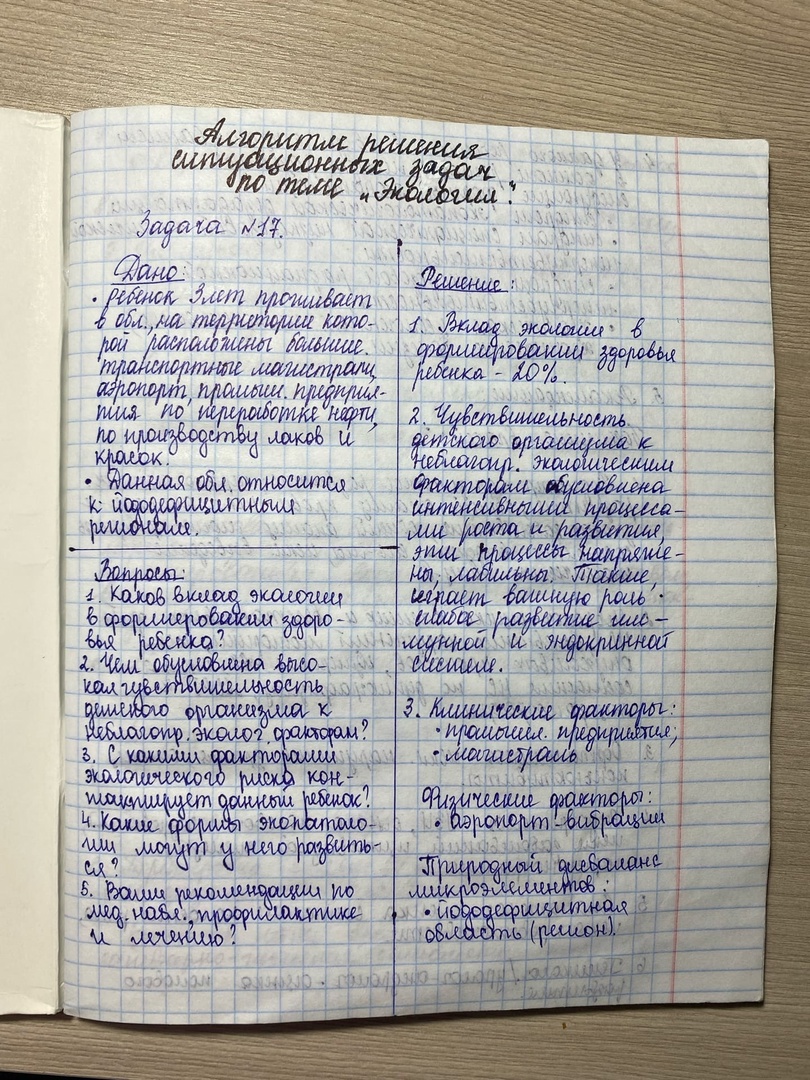 Алгоритм решения
ситуационных задач
по теме „Экология".
Задача №17.
Дано:
• ребенок 3лет проживает
в обл., на территории кото-
рой расположены большие
транспортные магистрали,
аэропорт, промыш. предприя-
тия по переработке нефти,
по производству лаков и
красок.
• Данная обл. относится
к йододефицитным
регионам.
Вопросы:
1. Каков вклад экологии
в формировании здоро-
вья ребенка?
2. Чем обусловлена высо-
кая чувствительность
детского организма к
неблагопр. эколог. факторам?
3. С какими факторами
экологического риска кон-
тактирует данный ребенок?
4. Какие формы экопатоло-
гии могут у него развить-
ся?
5. Ваши рекомендации по
мед. набл., профилактике
и лечению?
Решение:
1. Вклад экологии в
формировании здоровья
ребенка - 20%.
2. Чувствительность
детского организма к
неблагопр. экологическим
факторам обусловлена
интенсивными процесса-
ми роста и развития,
эти процессы напряже-
ны, лабильны. Также,
играет важную роль
слабое развитие им-
мунной и эндокринной
системе.
3. Клинические факторы:
• промышл. предприятия;
• магистраль
Физические факторы:
• аэропорт - вибрации
Природный дисбаланс
микроэлементов:
• йододефицитная
область (регион).